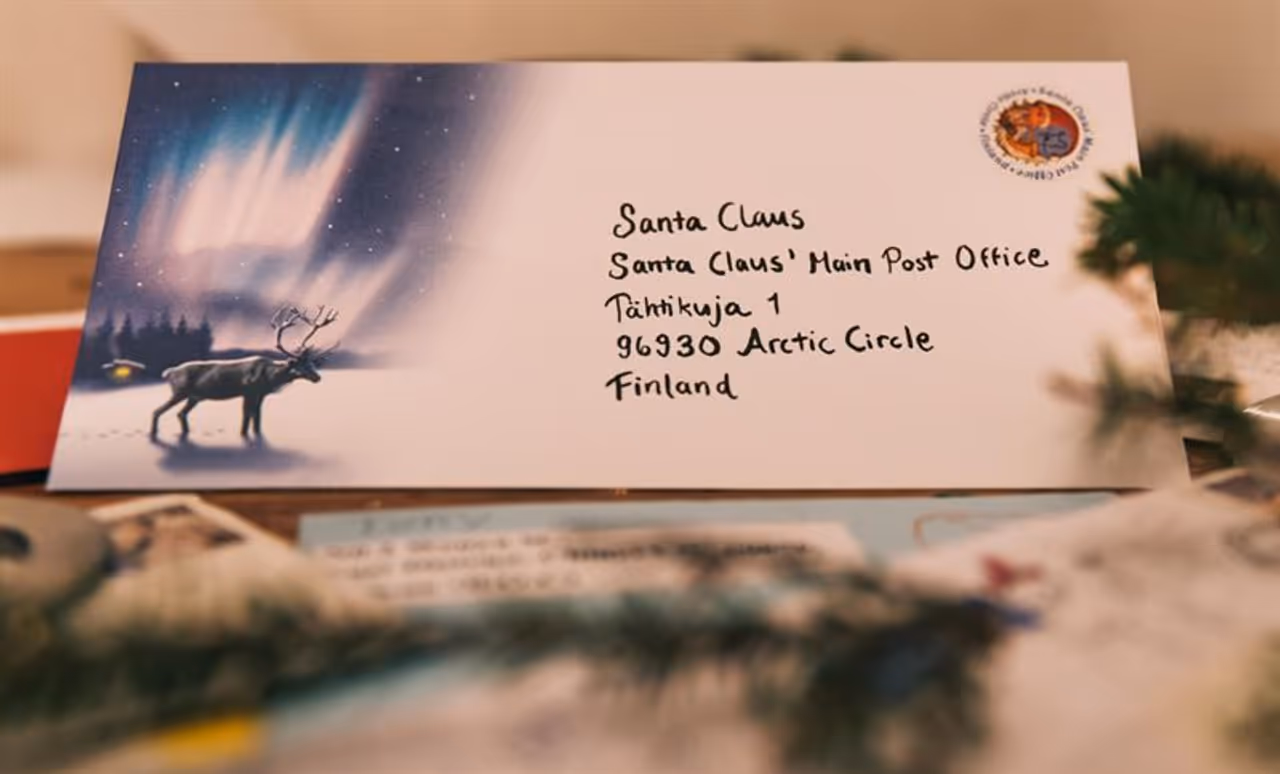 Santa Claus
Santa Claus' Main Post Office
Tähtikuja 1
96930 Arctic Circle
Finland
Santa Claus Main Post Office